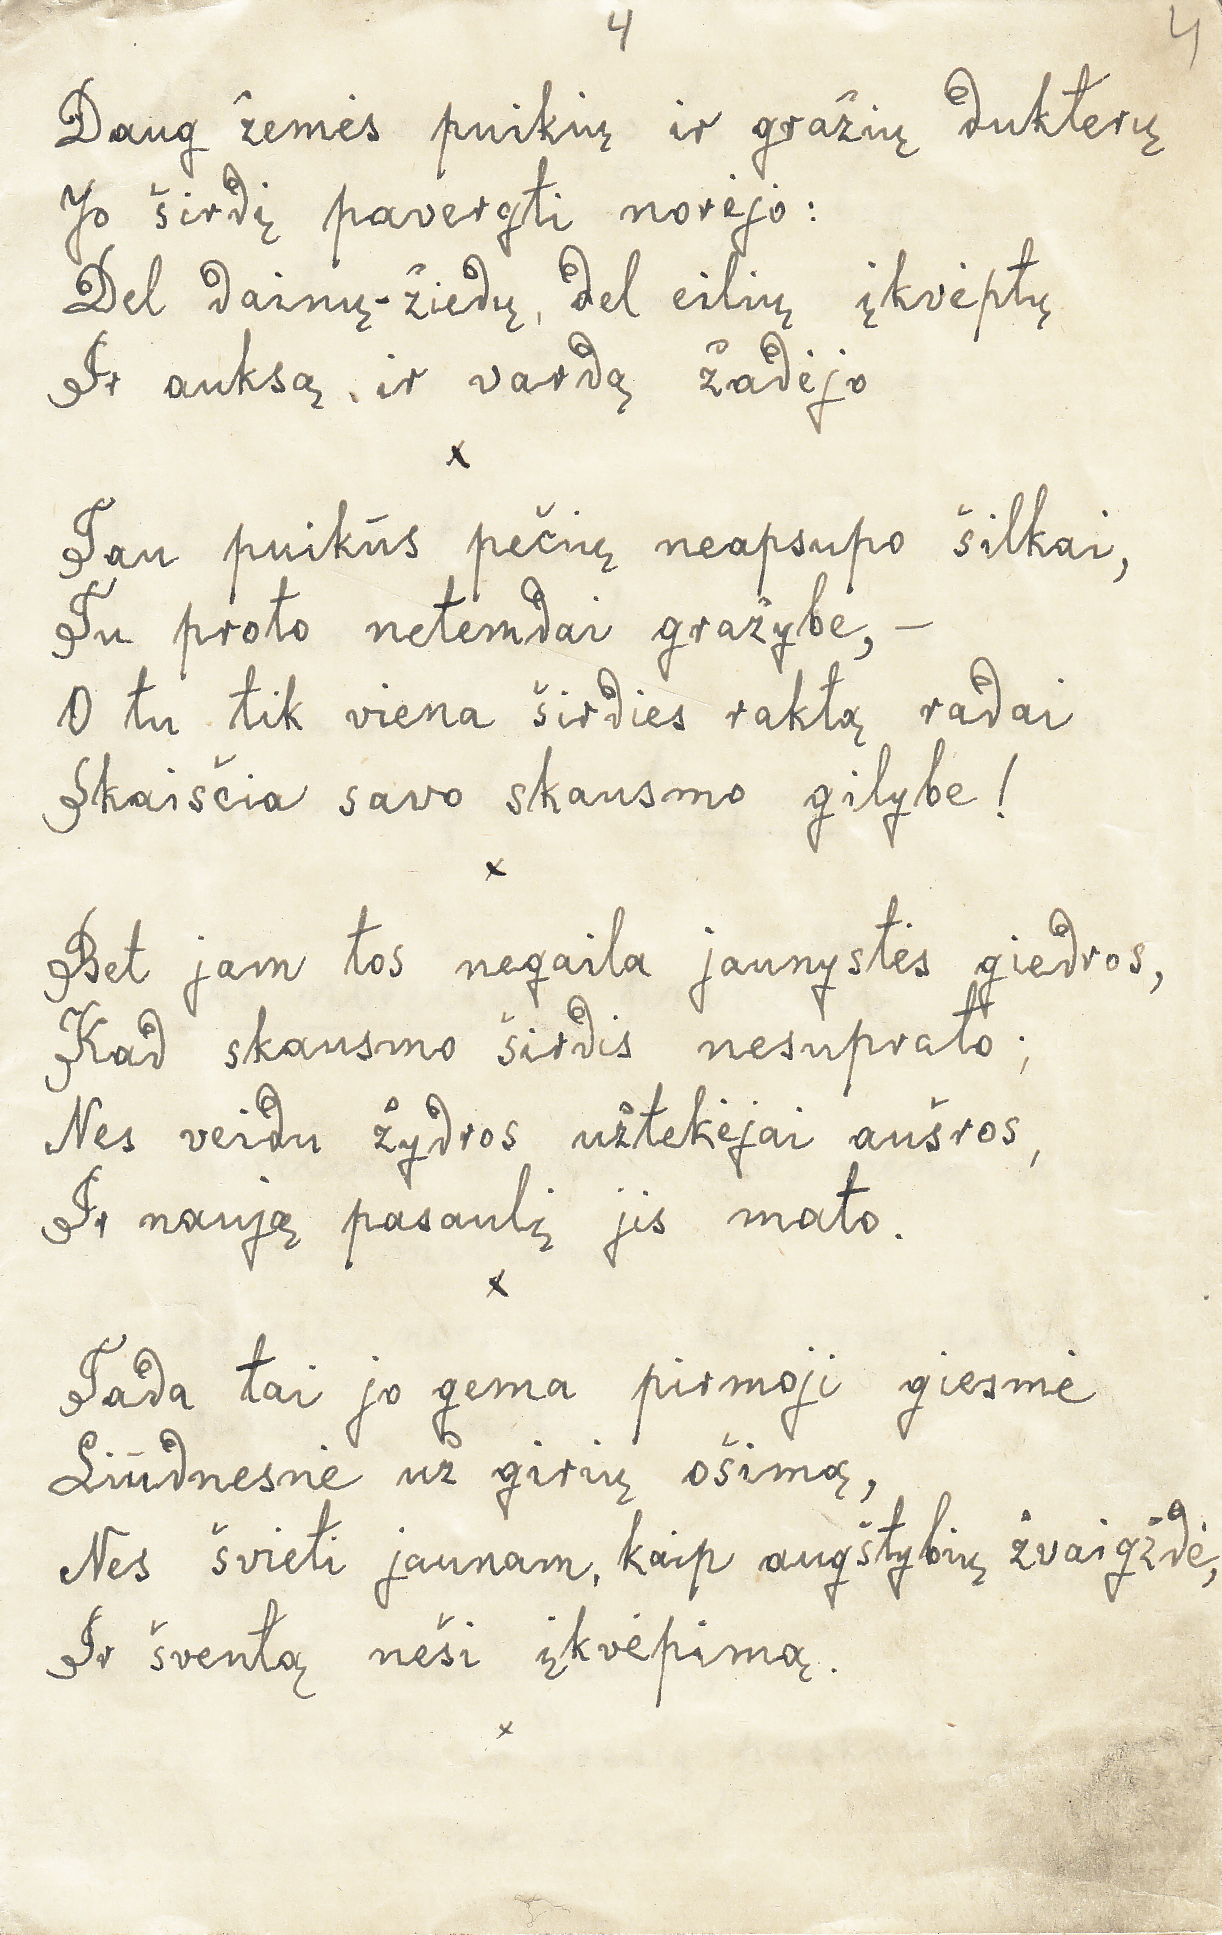 4 4
Daug žemės puikių ir gražių dukterų
Jo širdį pavergti norėjo:
Del dainų-žiedų, del eilių įkvėptų
Ir auksą ir vardą žadėjo
x
Tau puikūs pečių neapsupo šilkai,
Tu proto netemdai gražybe, –
O tu tik viena širdies raktą radai
Skaisčia savo skausmo gilybe!
x
Bet jam tos negaila jaunystės giedros,
Kad skausmo širdis nesuprato;
Nes veidu žydros užtekėjai aušros,
Ir naują pasaulį jis mato.
x
Tada tai jo gema pirmoji giesmė
Liūdnesnė už girių ošimą,
Nes švieti jaunam, kaip augštybių žvaigždė,
Ir šventą neši įkvėpimą.
x